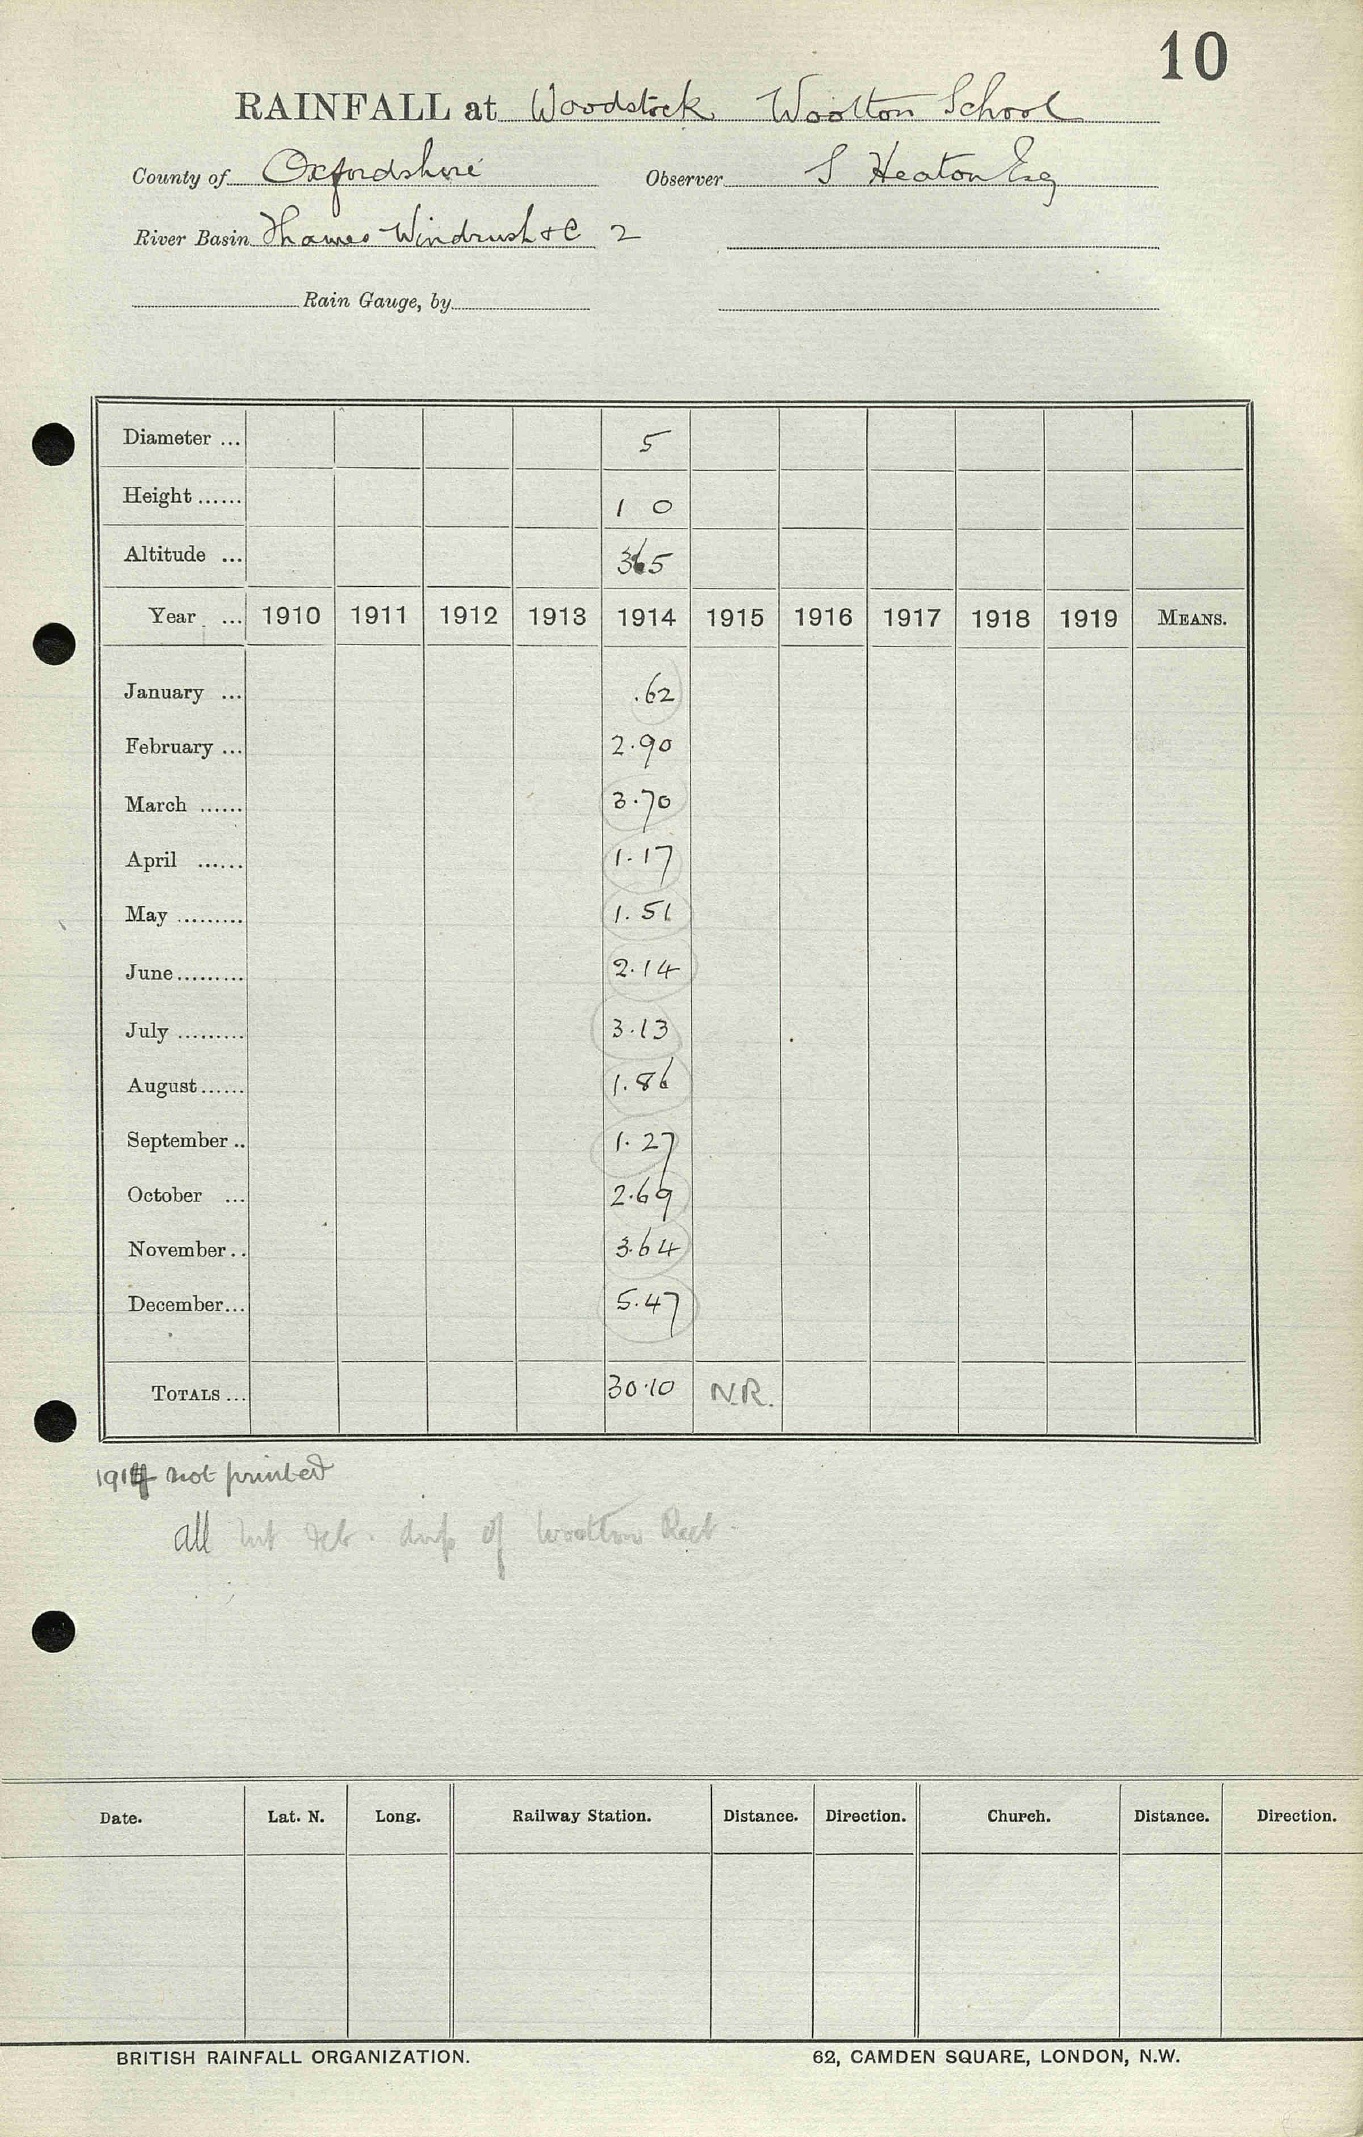 10
RAINFALL at Woodstock Wootton School
County of Oxfordshire Observer S Heaton Esq
River Basin Thames Windrush & C 2
Rain Gauge, by
Diameter ... 5
Height ...... 1 0
Altitude ... 365
Year ... 1910 1911 1912 1913 1914 1915 1916 1917 1918 1919 MEANS.
January ... .62
February ... 2.90
March ...... 3.70
April ...... 1.17
May ......... 1.51
June ......... 2.14
July ......... 3.13
August ...... 1.86
September .. 1.27
October ... 2.69
November .. 3.64
December... 5.47
TOTALS ... 30.10 N.R.
1914 not printed
all but Feb. dup of Wootton Rect
Date. Lat. N. Long. Railway Station. Distance. Direction. Church. Distance. Direction.
BRITISH RAINFALL ORGANIZATION. 62, CAMDEN SQUARE, LONDON, N.W.